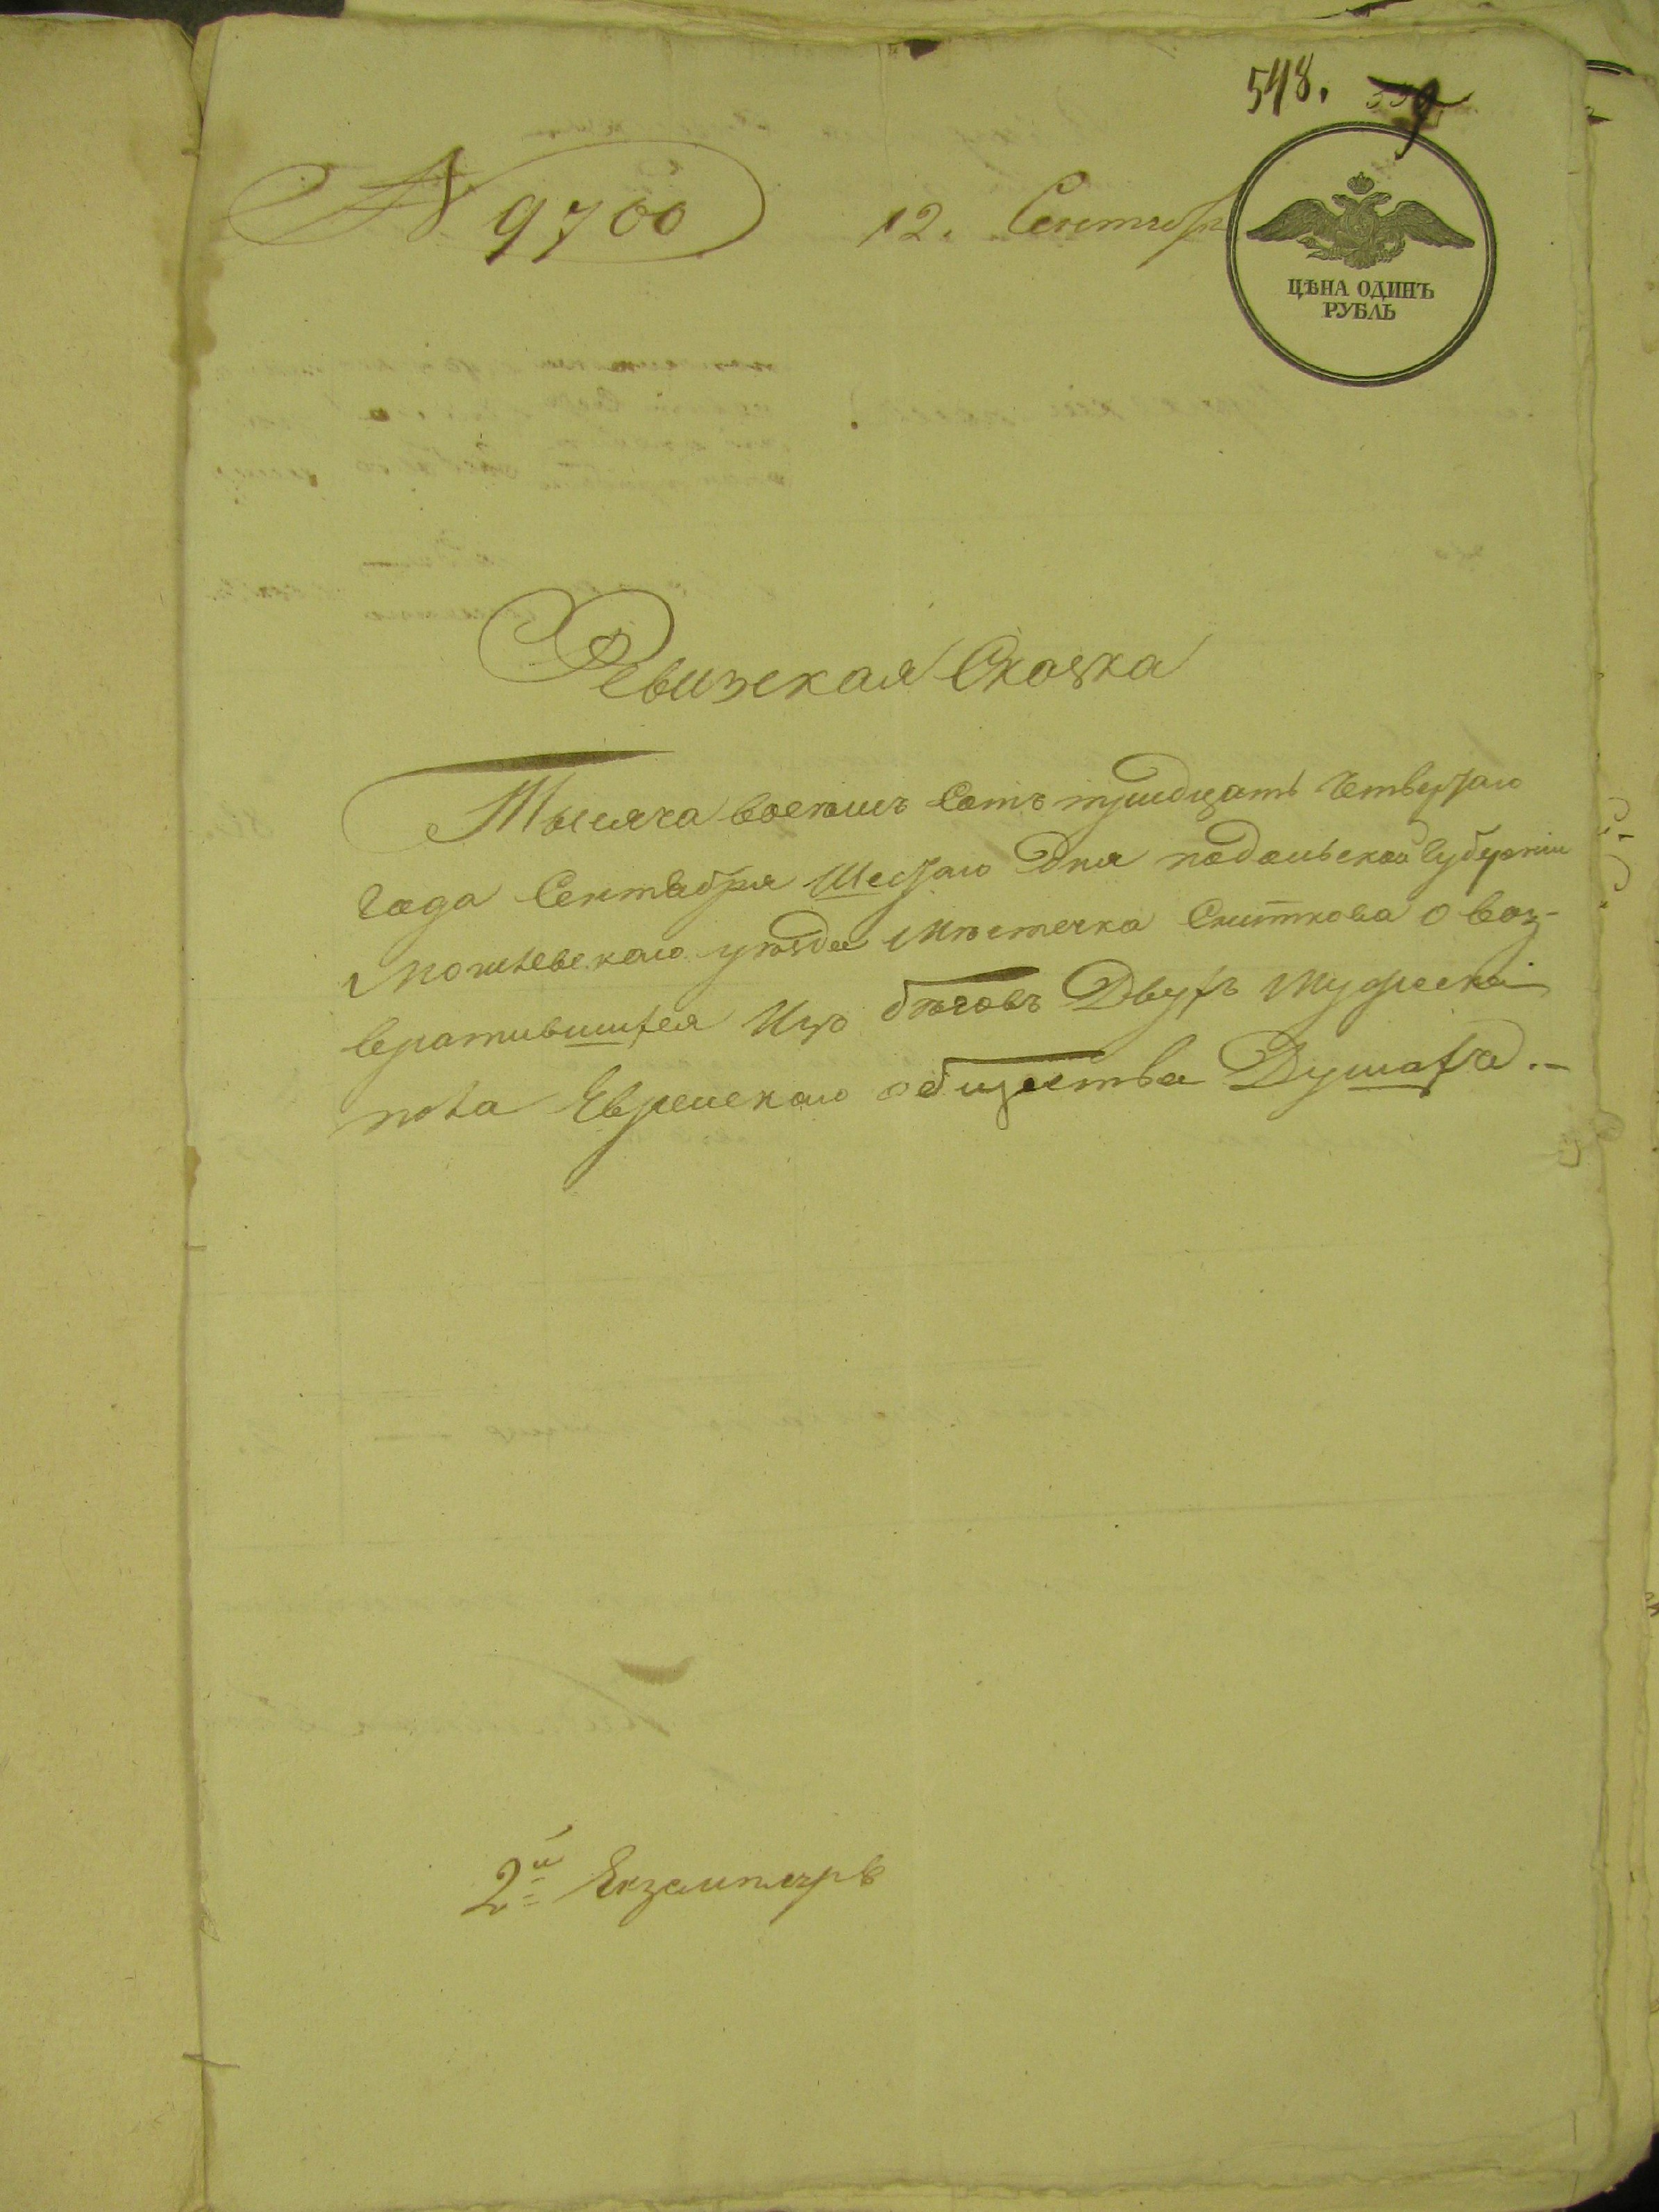 548.
N 9700 12. Сентября
ЦѢНА ОДИНЪ
РУБЛЬ
Ревизская Сказка
Тысяча восемь сотъ тридцать Четвертаго
Года Сентября Шестаго Дня подольской Губернии
Могилевскаго уѣзда Мѣстечка Сниткова О воз-
вратившихся Изъ бѣговъ Двухъ Мужеска
пола Еврейскаго общества Душаха.
2й Екземпляръ